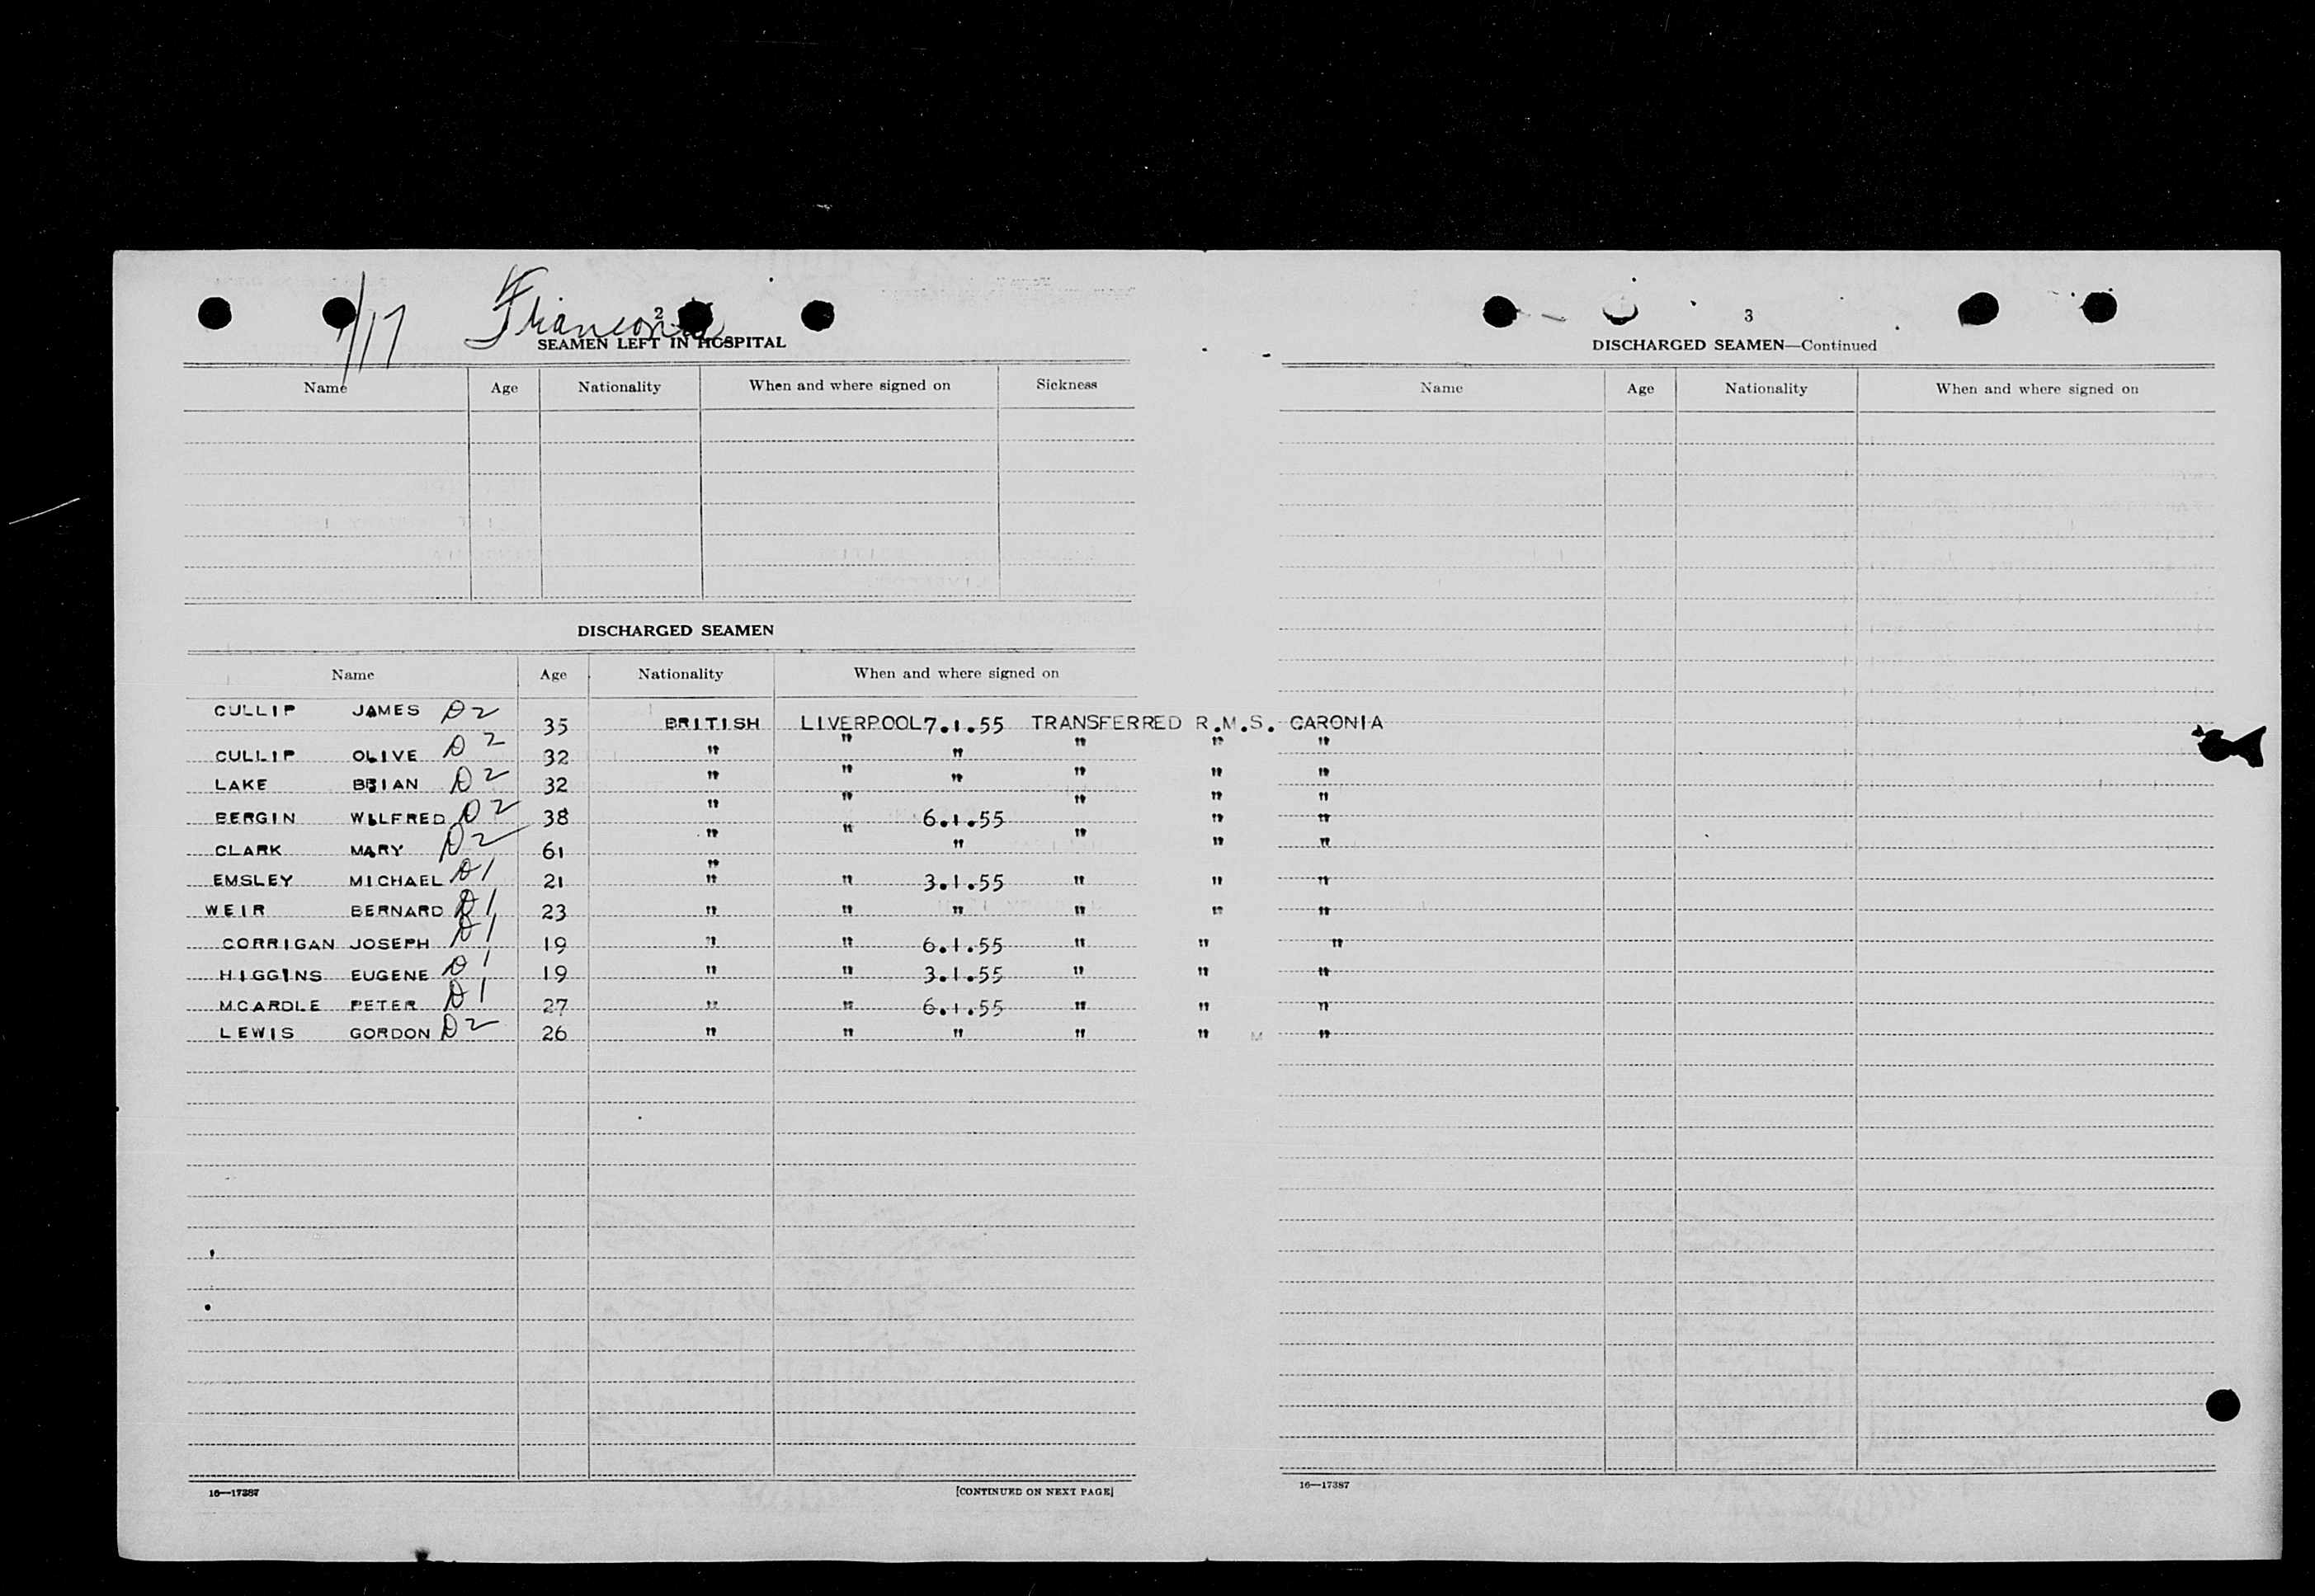 1/17 Franconia
2
SEAMEN LEFT IN HOSPITAL
Name Age Nationality When and where signed on Sickness
DISCHARGED SEAMEN
Name Age Nationality When and where signed on
CULLIP JAMES D2 35 BRITISH LIVERPOOL 7.1.55 TRANSFERRED R.M.S. CARONIA
CULLIP OLIVE D2 32 " " " " " "
LAKE BRIAN D2 32 " " " " " "
BERGIN WILFRED D2 38 " " 6.1.55 " " "
CLARK MARY D2 61 " " " " " "
EMSLEY MICHAEL D1 21 " " 3.1.55 " " "
WEIR BERNARD D1 23 " " " " " "
CORRIGAN JOSEPH D1 19 " " 6.1.55 " " "
HIGGINS EUGENE D1 19 " " 3.1.55 " " "
MCARDLE PETER D1 27 " " 6.1.55 " " "
LEWIS GORDON D2 26 " " " " " "
16—17387 [CONTINUED ON NEXT PAGE]
3
DISCHARGED SEAMEN—Continued
Name Age Nationality When and where signed on
16—17387